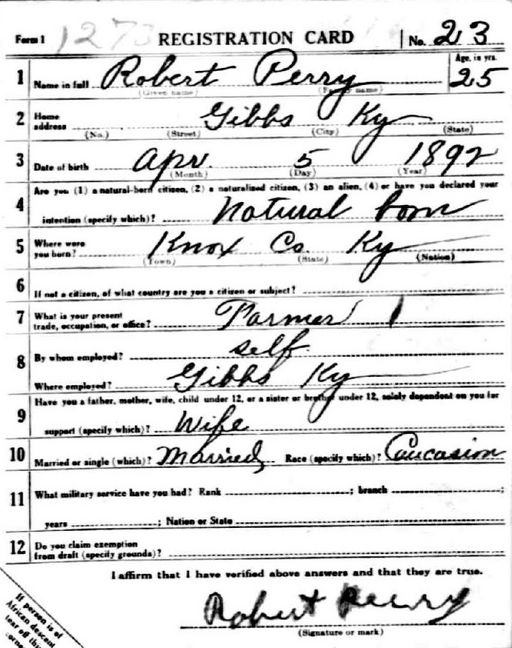 Form 1 1273 REGISTRATION CARD No. 23
1 Name in full Robert Perry Age, in yrs. 25
(Given name) (Family name)
2 Home address Gibbs Ky
(No.) (Street) (City) (State)
3 Date of birth Apr. 5 1892
(Month) (Day) (Year)
4 Are you (1) a natural-born citizen, (2) a naturalized citizen, (3) an alien, (4) or have you declared your
intention (specify which)? Natural born
5 Where were you born? Knox Co. Ky
(Town) (State) (Nation)
6 If not a citizen, of what country are you a citizen or subject?
7 What is your present trade, occupation, or office? Farmer 1
8 By whom employed? self
Where employed? Gibbs Ky
9 Have you a father, mother, wife, child under 12, or a sister or brother under 12, solely dependent on you for
support (specify which)? Wife
10 Married or single (which)? Married Race (specify which)? Caucasion
11 What military service have you had? Rank ; branch ;
years ; Nation or State
12 Do you claim exemption from draft (specify grounds)?
I affirm that I have verified above answers and that they are true.
Robert Perry
(Signature or mark)
If person is of
African descent
tear off this
corner